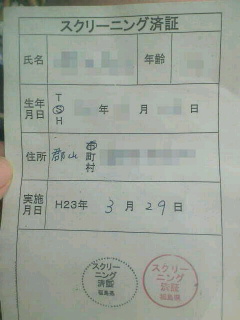 スクリーニング済証
氏名 年齢
生年月日 T S H 年 月 日
住所 郡山 市町村
実施月日 H23年 3月29日
スクリーニング済証 福島県
スクリーニング済証 福島県